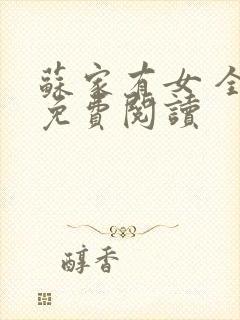 蘇家有女 全
免費閱讀
醇香